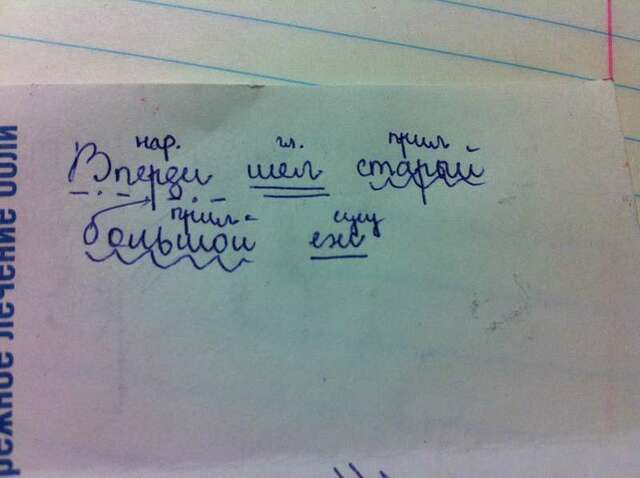 режное лечение боли
нар. гл. прил-
Впереди шел старый
прил- сущ
большой еж